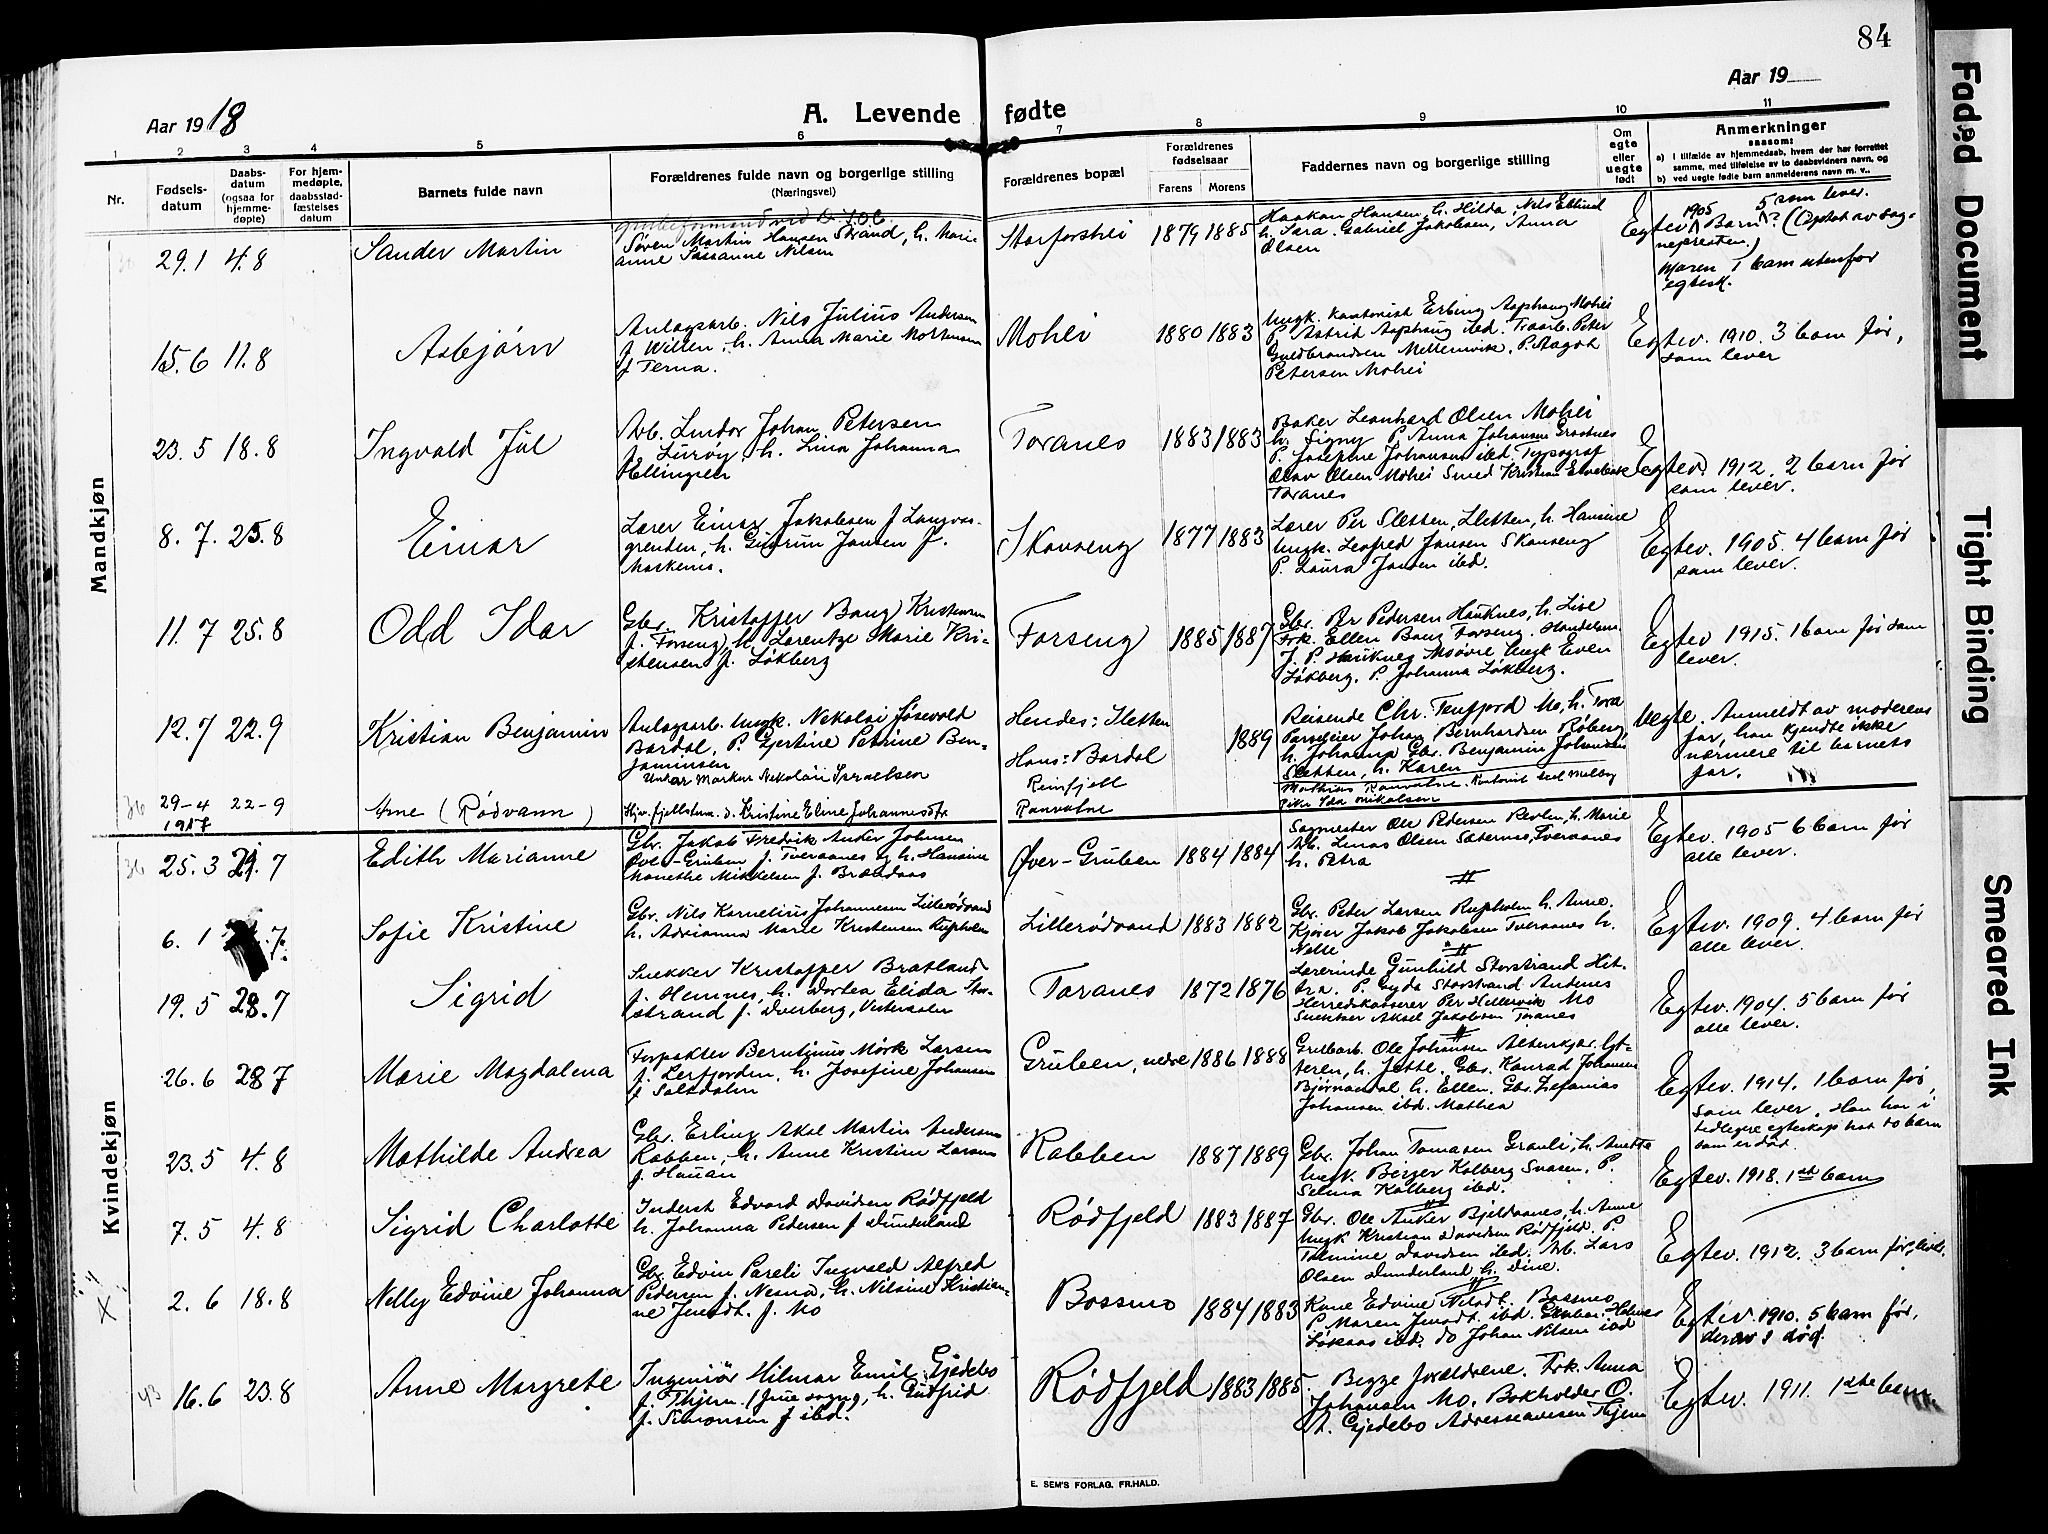 84
Aar 1918
A. Levende fødte
Aar 19
1 2 3 4 5 6 7 8 9 10 11
Nr.
Fødsels-
datum
Daabs-
datum
(ogsaa for
hjemme-
døpte)
For hjem-
medøpte,
daabsstad-
fæstelses
datum
Barnets fulde navn
Forældrenes fulde navn og borgerlige stilling
(Næringsvei)
Forældrenes bopæl
Forældrenes
fødselsaar
Farens Morens
Faddernes navn og borgerlige stilling
Om
egte
eller
uegte
født
Anmerkninger
saasom:
a) I tilfælde av hjemmedaab, hvem der har forrettet
samme, med tilføielse av to daabsvidners navn, og
b) ved uegte fødte barn anmelderens navn m. v..
Mandkjøn
29.1 4.8 Sander Martin
Søren Martin Hansen Strand, h. Mari-
anne Sussanne Nilsen
Storforshei 1879 1885
Haakon Hansen, h. Hilda, Nils
h. Sara. Gabriel Jakobsen, Anna
Olsen
Egtev. 1905 Barn? 5 som lever. (Optat av sog-
nepresten.)
Maren 1 barn utenfor
egtesk.
15.6 11.8 Asbjørn
Anlagsarb. Nils Julius Andersen
f. Willen, h. Anna Marie Mortensen
f. Terna.
Mohei 1880 1883
Ungk. kontorist Erling Asphaug Mohei
P. Astrid Asphaug ibd. Traarb. Peter
Guldbrandsen Mellemvik, P. Aagot
Petersen Mohei
Egtev. 1910. 3 barn før,
som lever
23.5 18.8 Ingvald Jul
Arb. Lindor Johan Petersen
f. Lurøy, h. Lina Johanna
Ellingsen
Toranes 1883 1883
Baker Leonhard Olsen Mohei
h. Signy P. Anna Johansen
P. Josefine Johansen ibd. Typograf
Olav Olsen Mohei Smed Kristian
Toranes
Egtev. 1912. 2 barn før
som lever.
8.7. 25.8 Einar
Lærer Einar Jakobsen f. Langvas-
grenden, h. Gudrun Jansen f.
Moskenes.
Skonseng 1877 1883
Lærer Per Sletten, Sletten, h. Hansine
Ungk. Leofred Jansen Skonseng
P. Laura Jansen ibd.
Egtev. 1905. 4 barn før
som lever.
11.7 25.8 Odd Idar
Gbr. Kristoffer Bang Kristensen
f. Forseng, h. Lorentze Marie Kri-
stensen f. Løkberg
Forseng 1885 1887
Gbr. Per Pedersen Hauknes, h. Lise
Frk. Ellen Bang Forseng. Handelsm.
J. P. Hauknes Ungk. Even
Løkberg. P. Johanna Løkberg.
Egtev 1915. 1 barn før som
lever.
12.7 22.9 Kristian Benjamin
Anlagsarb. Ungk. Nekolai Jøsevold
Bardal, P. Gjertine Petrine Ben-
jaminsen
Hendes: Sletten
Hans: Bardal
1889
Reisende Chr. Mo, h. Tora
Parseleier Johan Bernhardsen Røberg
h. Johanna Gbr. Benjamin Johansen
Sletten, h. Karen
Uegte. Anmeldt av moderens
far, han kjendte ikke
nærmere til barnets
far.
36 29-4
1917 22-9 Arne (Rødvann)
Markus Nekolai Israelsen
Kristine Eline Johannesdtr
Reinfjell
Ranvatne
Kvindekjøn
36 25.3 21.7 Edith Marianne
Gbr. Jakob Fredrik Anker Johnsen
Øver-Gruben f. Tveraanes og h. Hansine
Monethe Mikkelsen f. Brændaas
Øver-Gruben 1884 1884
Sagmester Ole Pedersen Revlen, h. Marie
Arb. Linas Olsen Tveraanes
h. Petra
Egtev. 1905 6 barn før
alle lever.
6.1 7. Sofie Kristine
Gbr. Nils Kornelius Johannesen Lillerødvand
h. Adrianna Marie Kristensen
Lillerødvand 1883 1882
Gbr. Peter Larsen h. Anne.
Kjører Jakob Jakobsen Tveraanes h.
Nelle
Egtev. 1909. 4 barn før
alle lever.
19.5 28.7 Sigrid
Snekker Kristoffer Bratland
f. Hemnes, h. Dortea Elida Stor-
strand f. Dverberg, Vesteraalen
Toranes 1872 1876
Lærerinde Gunhild Storstrand Hit-
tra. P. Gyda Storstrand Andenes
Herredskasserer Per Hellesvik Mo
Snekker Aksel Jakobsen Toranes
Egtev. 1904. 5 barn før
alle lever.
26.6 28.7 Marie Magdalena
Forpakter Berntinus Mørk Larsen
f. Leirfjorden, h. Josefine Johansen
f. Saltdalen
Gruben, nedre 1886 1888
Grubearb. Ole Johansen
h. Jette. Gbr. Konrad Johansen
Bjørnaadal h. Ellen. Gbr. Zefanias
Johansen ibd. Mathea
Egtev. 1914. 1 barn før,
som lever. Han har i
tidligere egteskap hat to barn
som er død.
23.5 4.8 Mathilde Andrea
Gbr. Erling Aksel Martin Andersen
Rabben, h. Anne Kristine Larsen
f. Hauan
Rabben 1887 1889
Gbr. Johan Tomasen h. Anette
Ungk. Birger Kolberg P.
Selma Kolberg ibd.
Egtev. 1918. 1st barn
7.5 4.8 Sigrid Charlotte
Inderst Edvard Davidsen Rødfjeld
h. Johanna Pedersen f. Dunderland
Rødfjeld 1883 1887
Gbr. Ole Anker Bjeldaanes, h. Anne
Ungk Kristian Davidsen Rødfjeld. P.
Tomine Davidsen ibd. Arb. Lars
Olsen Dunderland h. Dine.
Egtev. 1912. 3 barn før, lever.
2.6 18.8 Nelly Edvine Johanna
Gbr. Edvin Pareli Ingvald Alfred
Pedersen f. Nesna, h. Nilsine Kristian-
ne Jensdt. f. Mo
Bossmo 1884 1883
Kone Edvine Nilsdt. Bossmo
P. Maren Jensdt. ibd. Grubearb.
ibd. do Johan Nilsen ibd
Egtev. 1910. 5 barn før,
derav 1 død.
43 16.6 23.8 Anne Margrete
Ingeniør Hilmar Emil Gjedebo
f. Thjem. h. Gudfrid
f. Simonsen f ibd.
Rødfjeld 1883 1885.
Begge forældrene. Frk. Anna
Johansen Mo. Bokholder O.
A. Gjedebo Adresseavisen Thjem
Egtev. 1911. 1ste barn
E. SEM'S FORLAG. FR.HALD.
Faded Document
Tight Binding
Smeared Ink